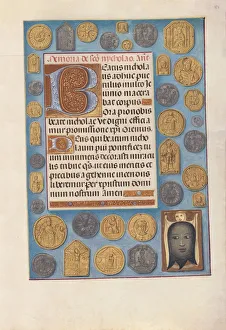 Memoria de sco nycholao. Añt.
Beatus nichola
us adhuc pue
rulus multo je
iunio macera
bat corpus
Ora pro nobis
beate nicholae Vt digni effici
mur promissione xpi Oremus.
Deus qui beatum nicho
laum pium pontificem tu
um innumeris decorasti mi
raculis tribue nobis
ut eius meritis et
precibus a gehenne incendiis
liberemur per xpistum domi
num nostrum Amen